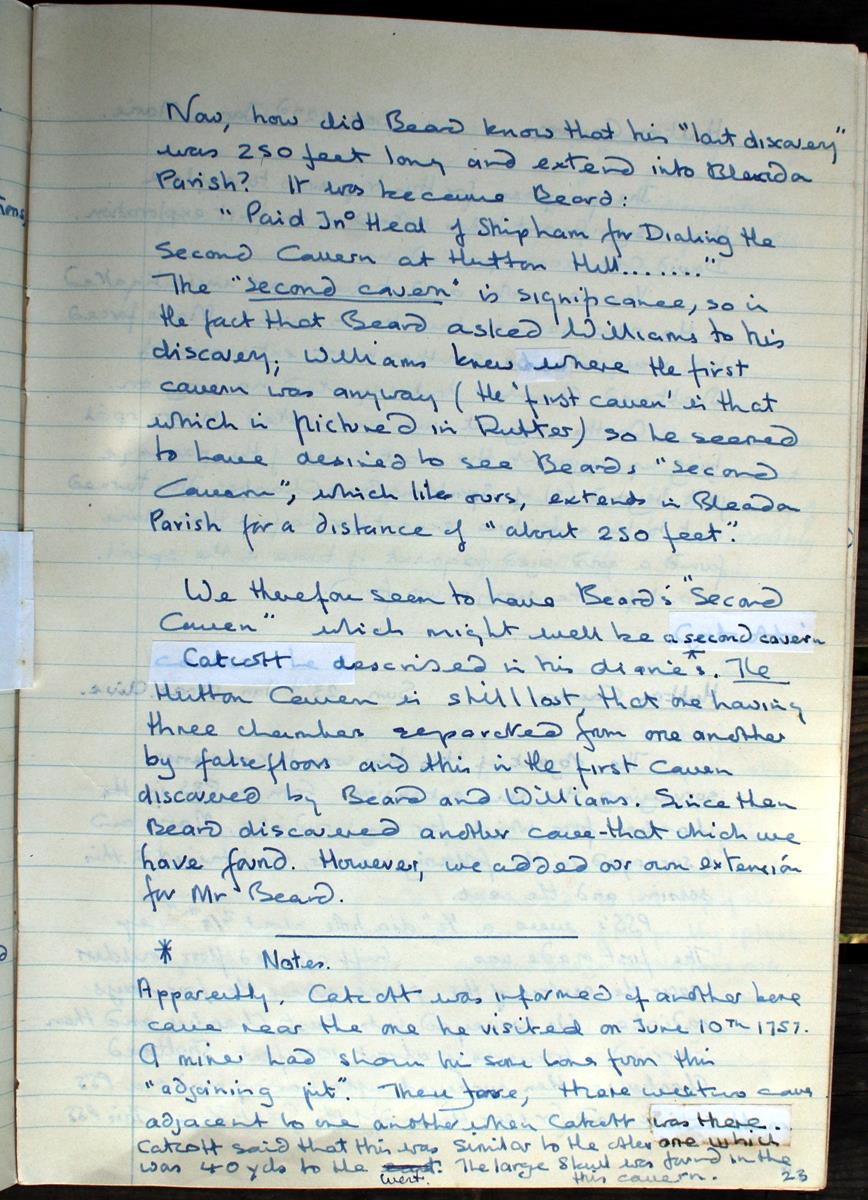 Now, how did Beard know that his "last discovery"
was 250 feet long and extend into Bleadon
Parish? It was because Beard:
"Paid Jnº Heal of Shipham for Dialing the
Second Cavern at Hutton Hill......."
The "second cavern" is significance, so is
the fact that Beard asked Williams to his
discovery; Williams knew where the first
cavern was anyway (the 'first caven' is that
which is pictured in Rutter) so he seemed
to have desired to see Beards "Second
Cavern", which like ours, extends in Bleadon
Parish for a distance of "about 250 feet".
We therefore seem to have Beard's "Second
Caven" which might well be a second cavern
Catcott described in his diarie*s. The
Hutton Cavern is still lost, that one having
three chambers separated from one another
by false floors and this is the first Cavern
discovered by Beard and Williams. Since then
Beard discovered another cave - that which we
have found. However, we added our own extension
for Mr Beard.
* Notes.
Apparently, Catcott was informed of another bone
cave near the one he visited on June 10TH 1757.
A miner had shown him some bones from this
"adjoining pit". Therefore, there were two caves
adjacent to one another when Catcott was there.
Catcott said that this was similar to the other one which
was 40 yds to the west. The large Skull was found in the
this cavern. 23